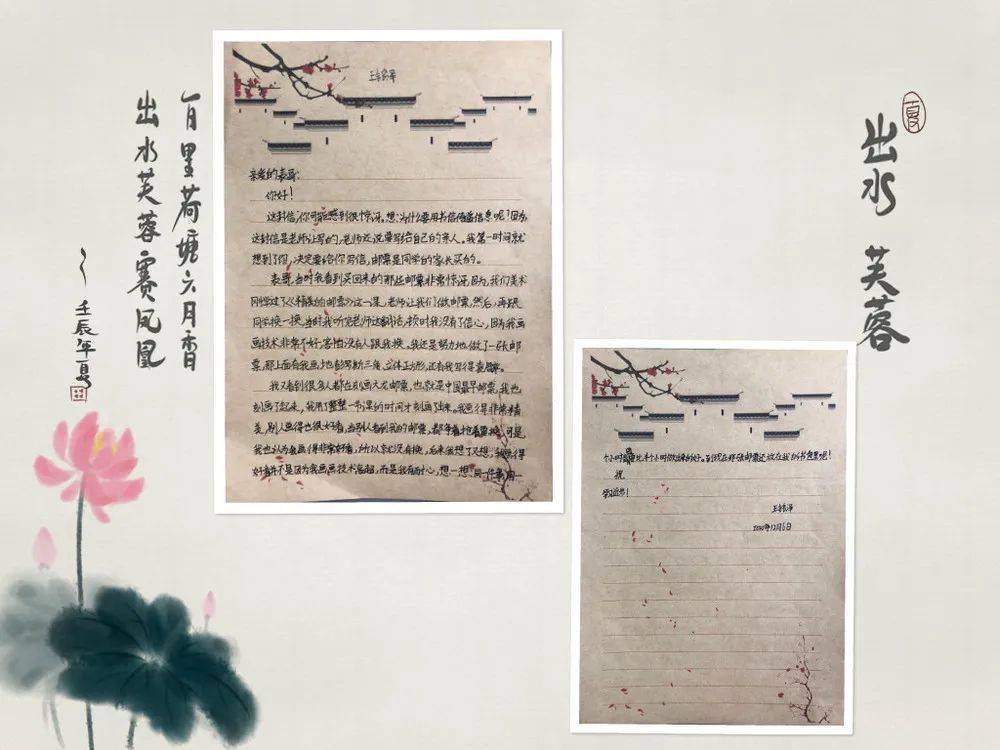 百里荷塘六月香
出水芙蓉赛凤凰
壬辰年夏
夏
出水 芙蓉
亲爱的表哥：
你好！
这封信，你可能感到很惊讶。想：为什么要用书信传递信息呢？因为，
这封信是老师让写的，老师还说要写给自己的亲人。我第一时间就
想到了你，决定要给你写信，邮票是同学的家长买的。
表哥，当时我看到买回来的那些邮票非常惊讶，因为，我们美术
刚学过了《精美的邮票》这一课，老师让我们做邮票，然后，再跟
同学换一换，当时我听完老师这翻话，顿时我没有了信心，因为我画
画技术非常不好，害怕没有人跟我换。我还是努力地做了一张邮
票，那上面有我画
我又看到很多人都在刻画大龙邮票，也就是中国最早邮票，我也
刻画了起来，我用了整整一节课的时间才刻画了出来。我画得非常精
美，别人画得也很好看，当别人看到我的邮票，都争着抢着要换，可是
我也认为我画得非常好看，所以就没有换，后来我想了又想，我觉得
好看并不是因为我画画技术高超，而是我有耐心，想一想，同一件事，用一
个小时总是比半个小时做出来的好。到现在那张邮票还放在我的书包里呢！
祝
学习进步！
2020年12月5日